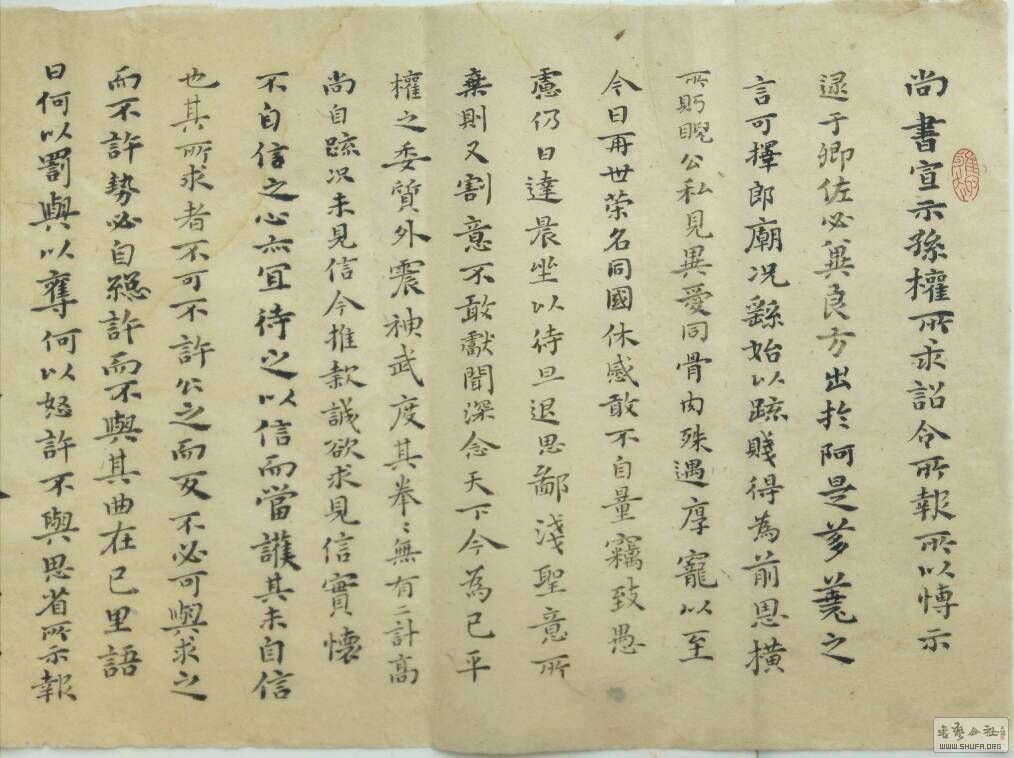 尚書宣示孫權所求詔令所報所以博示
逯于卿佐必冀良方出於阿是芻蕘之
言可擇郎廟況繇始以疏賤得為前恩橫
所眄睨公私見異愛同骨肉殊遇厚寵以至
今日再世榮名同國休慼敢不自量竊致愚
慮仍日達晨坐以待旦退思鄙淺聖意所
棄則又割意不敢獻聞深念天下今為已平
權之委質外震神武度其拳〻無有二計高
尚自疏況未見信今推款誠欲求見信實懷
不自信之心亦宜待之以信而當護其未自信
也其所求者不可不許許之而反不必可與求之
而不許勢必自絕許而不與其曲在己里語
曰何以罰與以奪何以怒許不與思省所示報
書藝公社
WWW.SHUFA.ORG